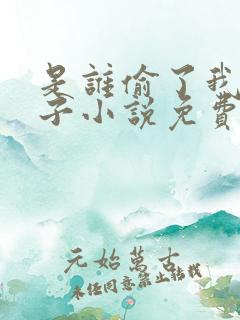 是誰偷了我
子小說免費
元始萬古
未經同意禁止轉載